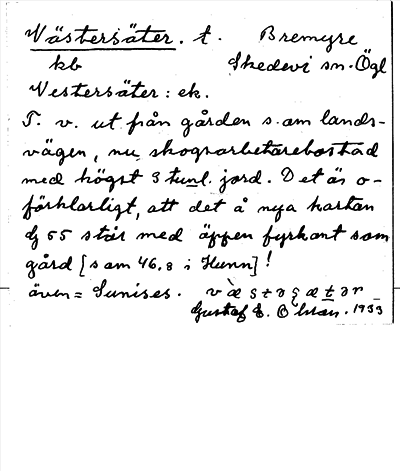 Västersäter. t. Bremyre
kb Skedevi sn. Ögl
Vestersäter: ek.
T. v. ut från gården s. om lands-
vägen, nu skogsarbetarebostad
med högst 3 tunl. jord. Det är o-
förklarligt, att det å nya kartan
55 står med öppen fyrkant som
gård [som 46,8 i Hunn]!
även = Sunises.
Gustaf E. Ohlson. 1933